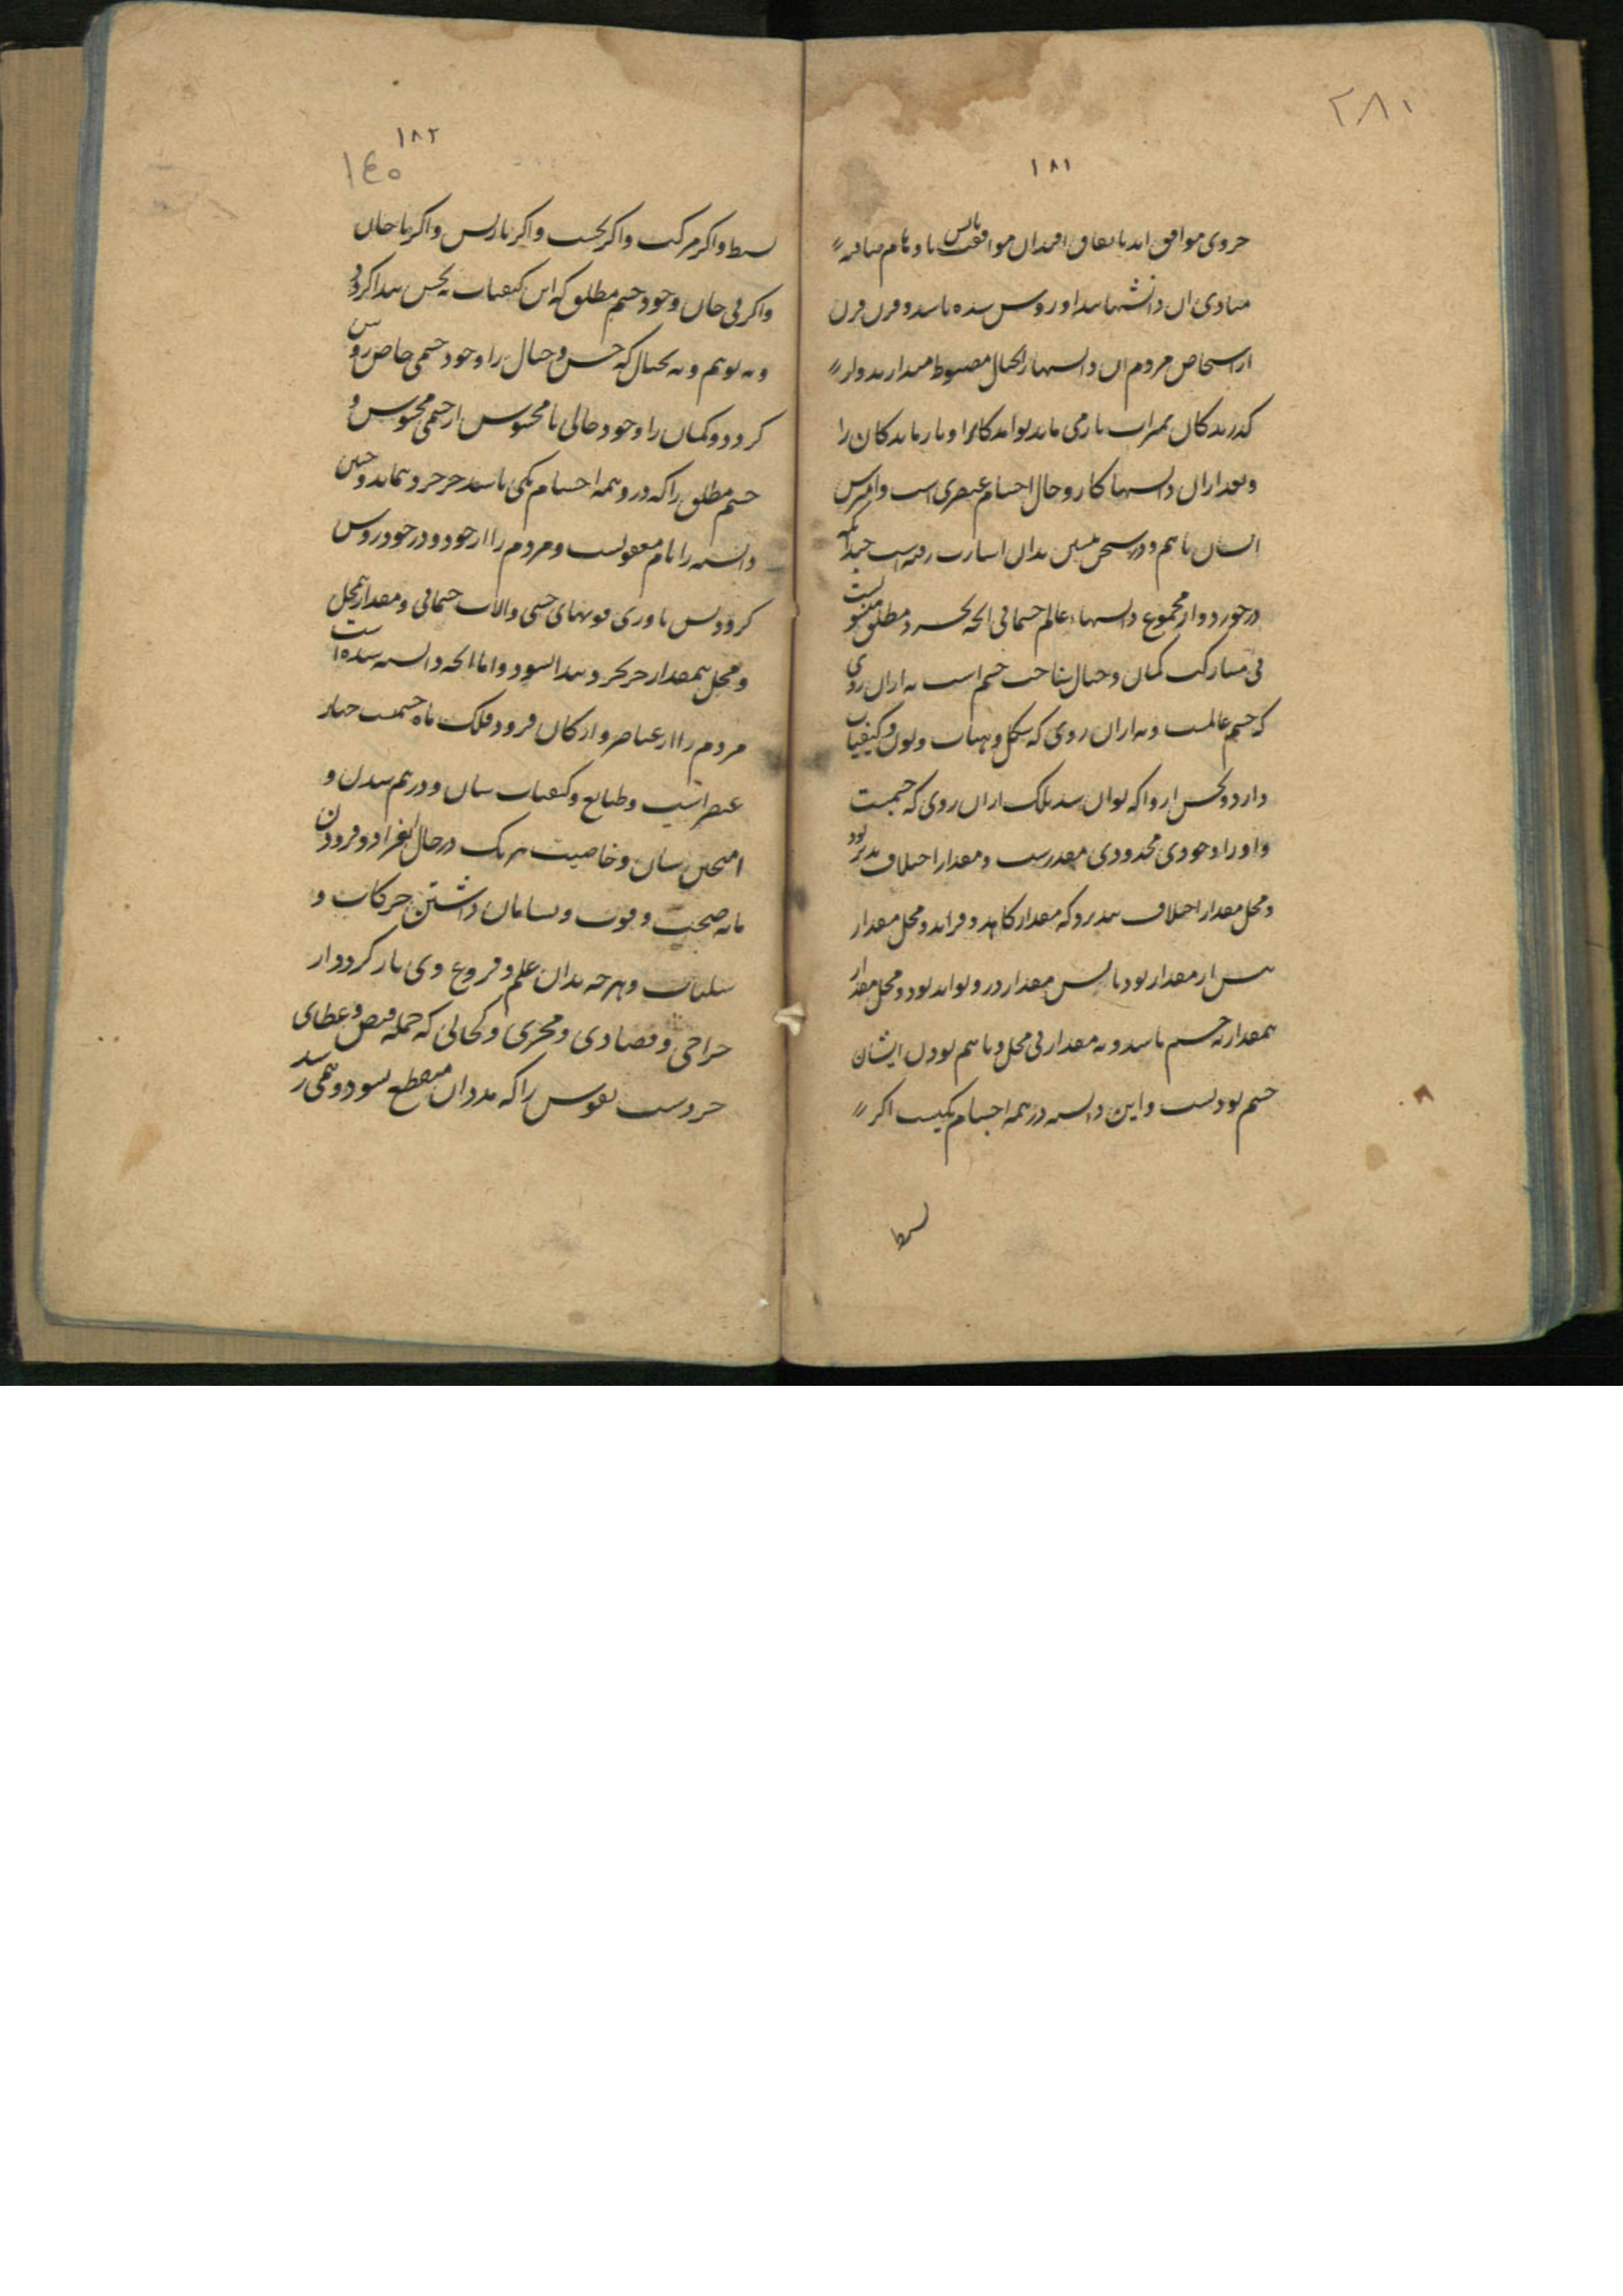 ۲۸۱
۱۸۱
جزوی موافق اند باتفاق افتد آن موافقت با و نام
مبادی آن دانشها پیدا و روشن شده باشد و قرن قرن
از اشخاص مردم آن دانشها را بخیال مضبوط میدارند و از
گذرندگان بمیراث باز می ماند
و بعد از آن دانشها کار و حال اجسام عنصری است و آمیزش
ایشان باهم و در سخن پیشین بدان اشارت رفته است چندانکه
درخورد و از مجموع دانشهاء عالم جسمانی آنچه بخرد مطلق منسوبست
بی مشارکت گمان و خیال شناخت جسم است نه از آن روی
که جسم عالمست و نه از آن روی که شکل و هیات و لون و کیفیات
دارد و بحس او را که توان شد بلک از آن روی که جسمست
و او را وجودی محدودی مقدرست و مقدار اختلاف پذیر بود
و محل مقدار اختلاف نپذیرد که مقدار کاهد و فزاید و محل مقدار
پیش از مقدار بود تا پس مقدار درو تواند بود و محل مقدار
بیمقدار نه جسم باشد و نه مقدار بی محل و باهم بودن ایشان
جسم بودنست و این دانسته در همه اجسام یکیست اگر
بسیط
۱۸۲
۱٤۰
بسیط و اگر مرکب و اگر و اگر و اگر با جان
و اگر بی جان وجود جسم مطلق که این کیفیات نه بحس پیدا گردد
و نه بوهم و نه بخیال که حس و خیال را وجود جسمی خاص روشن
گردد و گمان را وجود حالی نامحسوس از جسمی محسوس و
جسم مطلق را که درو همه اجسام یکی باشند جز خرد نماید و چنین
دانسته را نام معقولست و مردم را از خود و در خود روشن
گردد بی یاوری قوتهای حسی و آلات جسمانی و مقدار بیمحل
و محل بیمقدار جز بخرد پیدا نشود و اما آنچه دانسته شده است
مردم را از عناصر و ارکان فرود فلک ماه جسمیت چهار
عنصراست و طبایع و کیفیات شان و درهم شدن و
شان و خاصیت هریک در حال انفراد و
مایه صحت و قوت و بسامان داشتن حرکات و
و هرچه بدان علم و فروع وی بازگردد از
جراحی و فصادی و مجبری و کحالی که جمله فیض و عطای
خردست نفوس را که مدد آن منقطع نشود و همی رسد